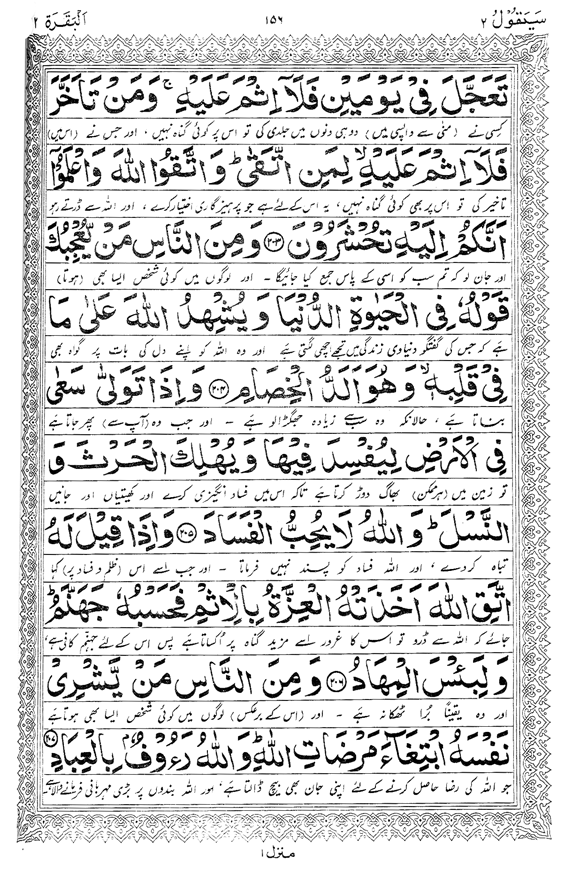 سَيَقُوْلُ ٢ ١٥٦ اَلْبَقَرَة ٢
تَعَجَّلَ فِيْ يَوْمَيْنِ فَلَاۤ اِثْمَ عَلَيْهِ ۚ وَمَنْ تَاَخَّرَ
کسی نے (منٰی سے واپسی میں) دو ہی دنوں میں جلدی کی تو اس پر کوئی گناہ نہیں، اور جس نے (اس میں)
فَلَاۤ اِثْمَ عَلَيْهِ ۙ لِمَنِ اتَّقٰى ؕ وَاتَّقُوا اللّٰهَ وَاعْلَمُوْۤا
تاخیر کی تو اس پر بھی کوئی گناہ نہیں، یہ اس کے لئے ہے جو پرہیزگاری اختیار کرے، اور اللہ سے ڈرتے رہو
اَنَّكُمْ اِلَيْهِ تُحْشَرُوْنَ ﴿٢٠٣﴾ وَمِنَ النَّاسِ مَنْ يُّعْجِبُكَ
اور جان لو کہ تم سب کو اسی کے پاس جمع کیا جائیگا ۔ اور لوگوں میں کوئی شخص ایسا بھی (ہوتا)
قَوْلُهٗ فِي الْحَيٰوةِ الدُّنْيَا وَيُشْهِدُ اللّٰهَ عَلٰى مَا
ہے کہ جس کی گفتگو دنیاوی زندگی میں تجھے اچھی لگتی ہے اور وہ اللہ کو اپنے دل کی بات پر گواہ بھی
فِيْ قَلْبِهٖ ۙ وَهُوَ اَلَدُّ الْخِصَامِ ﴿٢٠٤﴾ وَاِذَا تَوَلّٰى سَعٰى
بناتا ہے، حالانکہ وہ سب سے زیادہ جھگڑالو ہے ۔ اور جب وہ (آپ سے) پھر جاتا ہے
فِي الْاَرْضِ لِيُفْسِدَ فِيْهَا وَيُهْلِكَ الْحَرْثَ وَ
تو زمین میں (ہر ممکن) بھاگ دوڑ کرتا ہے تاکہ اس میں فساد انگیزی کرے اور کھیتیاں اور جانیں
النَّسْلَ ؕ وَاللّٰهُ لَا يُحِبُّ الْفَسَادَ ﴿٢٠٥﴾ وَاِذَا قِيْلَ لَهُ
تباہ کر دے، اور اللہ فساد کو پسند نہیں فرماتا ۔ اور جب اسے اس (ظلم و فساد پر) کہا
اتَّقِ اللّٰهَ اَخَذَتْهُ الْعِزَّةُ بِالْاِثْمِ فَحَسْبُهٗ جَهَنَّمُ ؕ
جائے کہ اللہ سے ڈرو تو اس کا غرور اسے مزید گناہ پر اکساتا ہے پس اس کے لئے جہنم کافی ہے،
وَلَبِئْسَ الْمِهَادُ ﴿٢٠٦﴾ وَمِنَ النَّاسِ مَنْ يَّشْرِيْ
اور وہ یقیناً برا ٹھکانہ ہے ۔ اور (اس کے برعکس) لوگوں میں کوئی شخص ایسا بھی ہوتا ہے
نَفْسَهُ ابْتِغَآءَ مَرْضَاتِ اللّٰهِ ؕ وَاللّٰهُ رَءُوْفٌۢ بِالْعِبَادِ ﴿٢٠٧﴾
جو اللہ کی رضا حاصل کرنے کے لئے اپنی جان بھی بیچ ڈالتا ہے، اور اللہ بندوں پر بڑی مہربانی فرمانے والا ہے
منزل ١